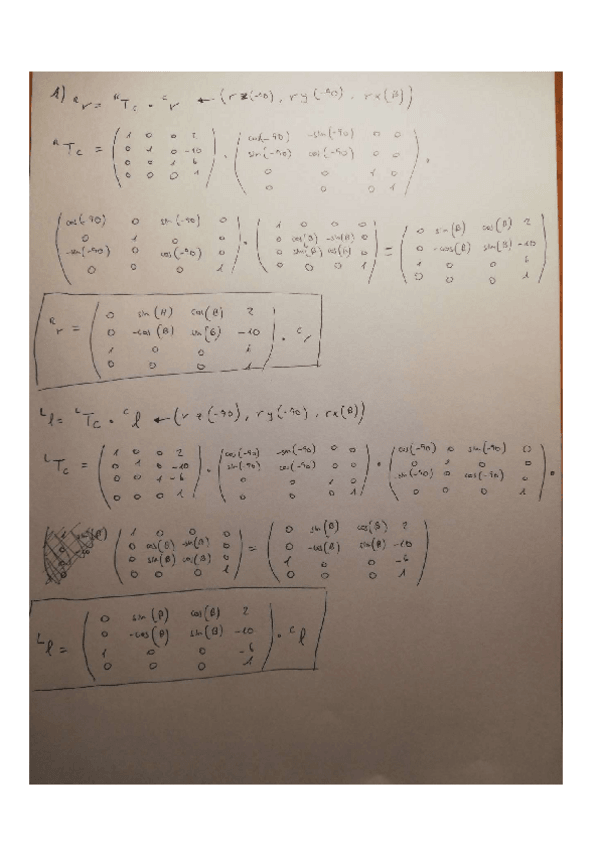 1) ᴿr = ᴿT_C · ᶜr ← (rz(-90), ry(-90), rx(β))
ᴿT_C = (1 0 0 2 / 0 1 0 -10 / 0 0 1 6 / 0 0 0 1) · (cos(-90) -sin(-90) 0 0 / sin(-90) cos(-90) 0 0 / 0 0 1 0 / 0 0 0 1) ·
(cos(-90) 0 sin(-90) 0 / 0 1 0 0 / -sin(-90) 0 cos(-90) 0 / 0 0 0 1) · (1 0 0 0 / 0 cos(β) -sin(β) 0 / 0 sin(β) cos(β) 0 / 0 0 0 1) = (0 sin(β) cos(β) 2 / 0 -cos(β) sin(β) -10 / 1 0 0 6 / 0 0 0 1)
ᴿr = (0 sin(β) cos(β) 2 / 0 -cos(β) sin(β) -10 / 1 0 0 6 / 0 0 0 1) · ᶜr
ᴸl = ᴸT_C · ᶜl ← (rz(-90), ry(-90), rx(β))
ᴸT_C = (1 0 0 2 / 0 1 0 -10 / 0 0 1 -6 / 0 0 0 1) · (cos(-90) -sin(-90) 0 0 / sin(-90) cos(-90) 0 0 / 0 0 1 0 / 0 0 0 1) · (cos(-90) 0 sin(-90) 0 / 0 1 0 0 / -sin(-90) 0 cos(-90) 0 / 0 0 0 1) ·
(1 0 0 0 / 0 cos(β) -sin(β) 0 / 0 sin(β) cos(β) 0 / 0 0 0 1) = (0 sin(β) cos(β) 2 / 0 -cos(β) sin(β) -10 / 1 0 0 -6 / 0 0 0 1)
ᴸl = (0 sin(β) cos(β) 2 / 0 -cos(β) sin(β) -10 / 1 0 0 -6 / 0 0 0 1) · ᶜl